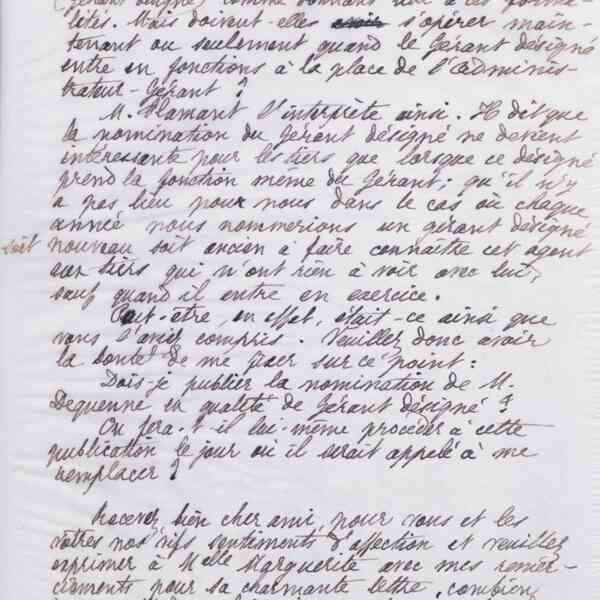 (gérant désigné) comme donnant lieu à ces forma-
lités. Mais doivent-elles s'opérer main-
tenant ou seulement quand le gérant désigné
entre en fonctions à la place de l'adminis-
trateur-gérant ?
M. Flamant l'interprète ainsi. Il dit que
la nomination du gérant désigné ne devient
intéressante pour les tiers que lorsque ce désigné
prend la fonction même du gérant; qu'il n'y
a pas lieu pour nous dans le cas où chaque
année nous nommerions un gérant désigné
soit nouveau soit ancien à faire connaître cet agent
aux tiers qui n'ont rien à voir avec lui,
sauf quand il entre en exercice.
Peut-être, en effet, était-ce ainsi que
vous l'aviez compris. Veuillez donc avoir
la bonté de me fixer sur ce point :
Dois-je publier la nomination de M.
Dequenne en qualité de gérant désigné ?
Ou fera-t-il lui-même procéder à cette
publication le jour où il serait appelé à me
remplacer ?
Recevez, bien cher ami, pour vous et les
vôtres nos vifs sentiments d'affection et veuillez
exprimer à Melle Marguerite avec mes remer-
ciements pour sa charmante lettre, combien